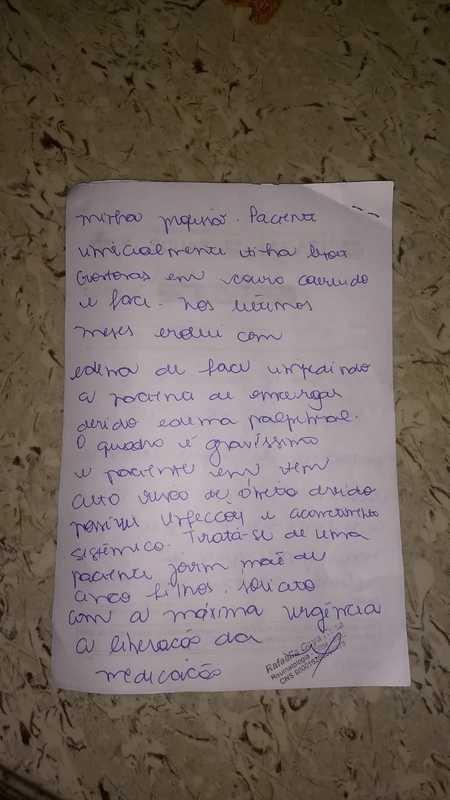 minha profissão. Paciente
inicialmente tinha lesões
em couro cabeludo
e face. Nos últimos
meses evolui com
edema de face impedindo
a paciente de enxergar
devido edema palpebral.
O quadro é gravíssimo
e paciente em tem
alto risco de óbito devido
possíveis infecções e acometimento
sistêmico. Trata-se de uma
paciente jovem mãe de
cinco filhos. Solicito
com a máxima urgência
a liberação da
medicação
Rafaelle
Reumatologia